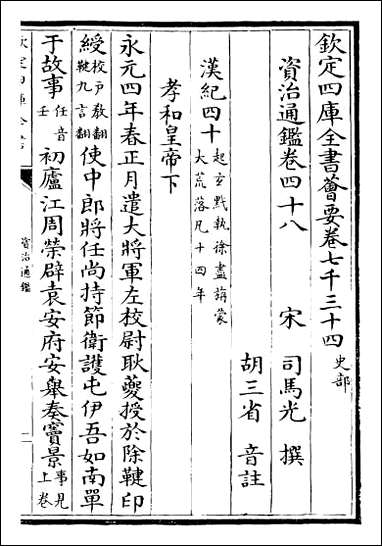 欽定四庫全書薈要卷七千三十四 史部
資治通鑑卷四十八
宋 司馬光 撰
胡三省 音註
漢紀四十 起玄黓執徐盡旃蒙大荒落凡十四年
孝和皇帝下
永元四年春正月遣大將軍左校尉耿夔授於除鞬印
綬 校戸敎翻鞬九言翻 使中郎將任尚持節衛護屯伊吾如南單
于故事 任音壬 初廬江周榮辟袁安府安舉奏竇景 事見上卷
資治通鑑